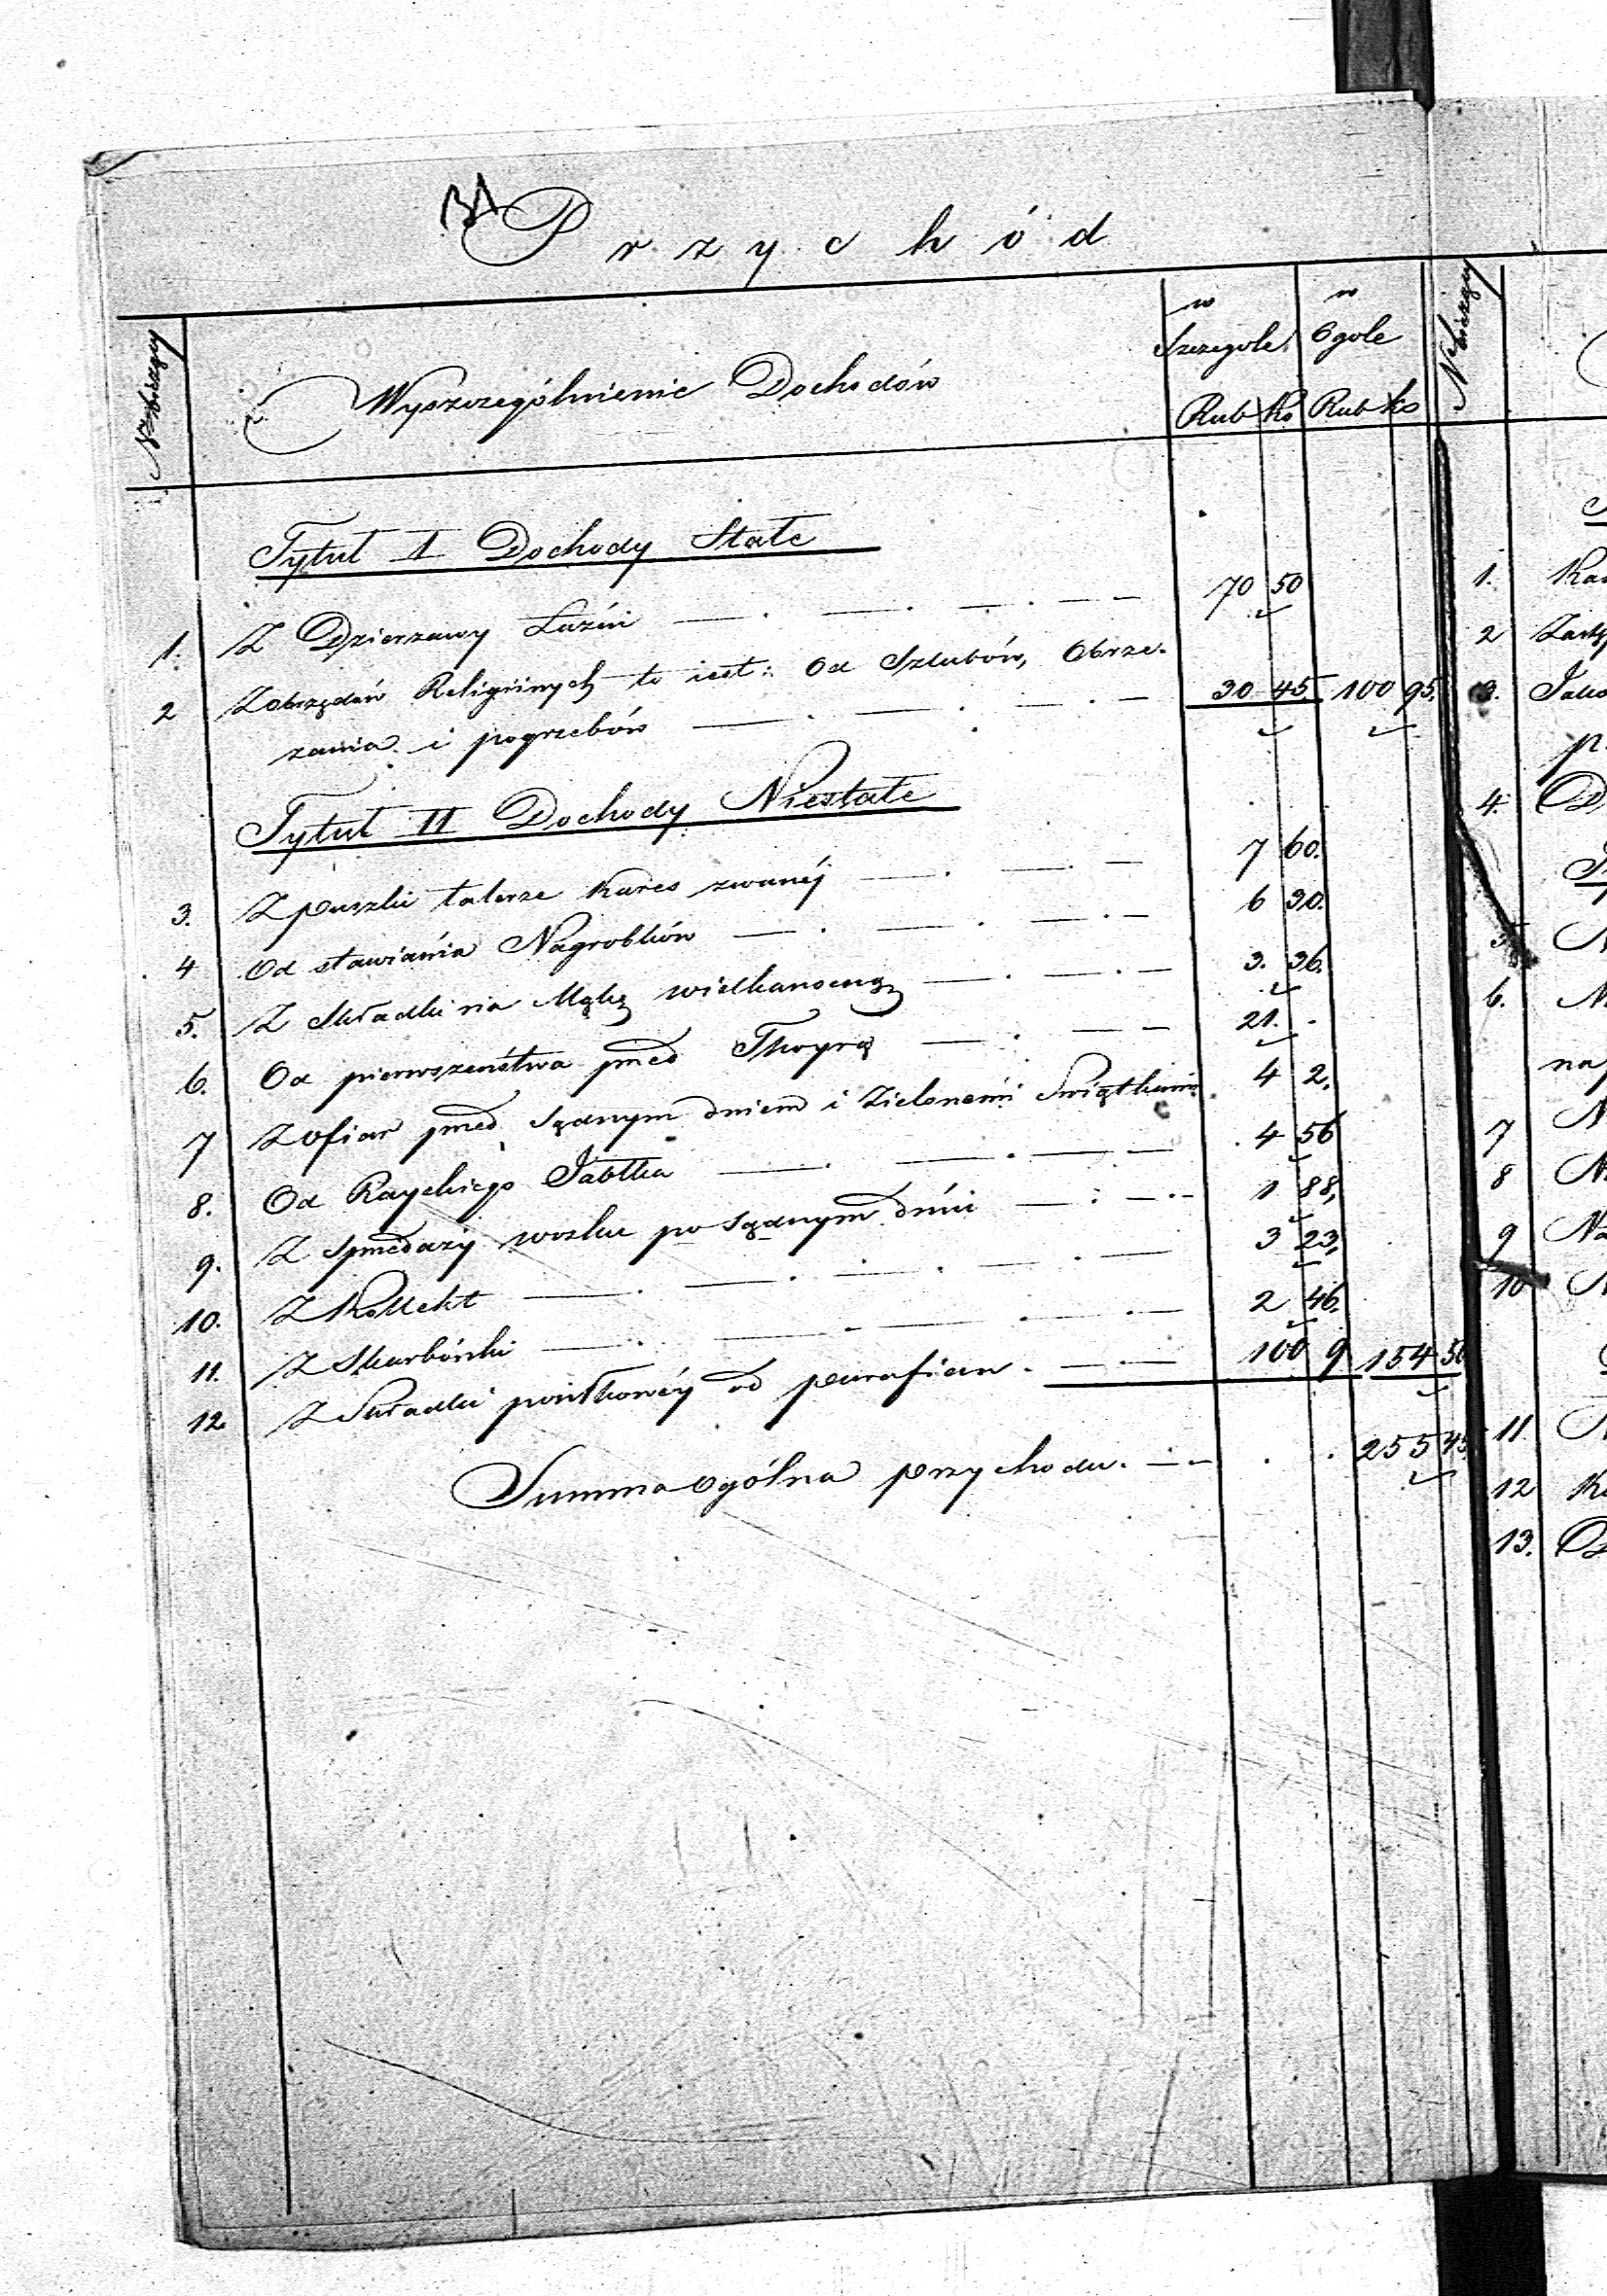 Przychód
N bieżący
Wyszczególnienie Dochodów
w Szczegole
w Ogole
Rub ks Rub ks
Tytuł I Dochody Stałe
1. Z Dzierzawy Łaźni 70 50
2 Z obrzędów Religiinych to iest: od Szlubów, Obrze-
zania i pogrzebów 30 45 100 95
Tytuł II Dochody Niestałe
3. Z puszki talerze kares zwanéj 7 60.
4 Od stawiania Nagrobków 6 30.
5. Z Składki na Mąkę wielkanocną 3. 36.
6. Od pierwszeństwa przed Thorą 21. -
7 Z ofiar przed Sądnym dniem i Zielonemi Swiątkami 4 2,
8. Od Rayskiego Jabłka 4 56
9. Z Sprzedaży wosku po Sądnym dniu 1 88,
10. Z Kollekt 3 23,
11. Z Skarbónki 2 46.
12 Z Składki poniłkowéy od parafian 100 9 154 50
Summa ogólna przychodu. 255 45
N bieżący
1.
2
3.
4.
6.
7
8
9
10
11
12
13.